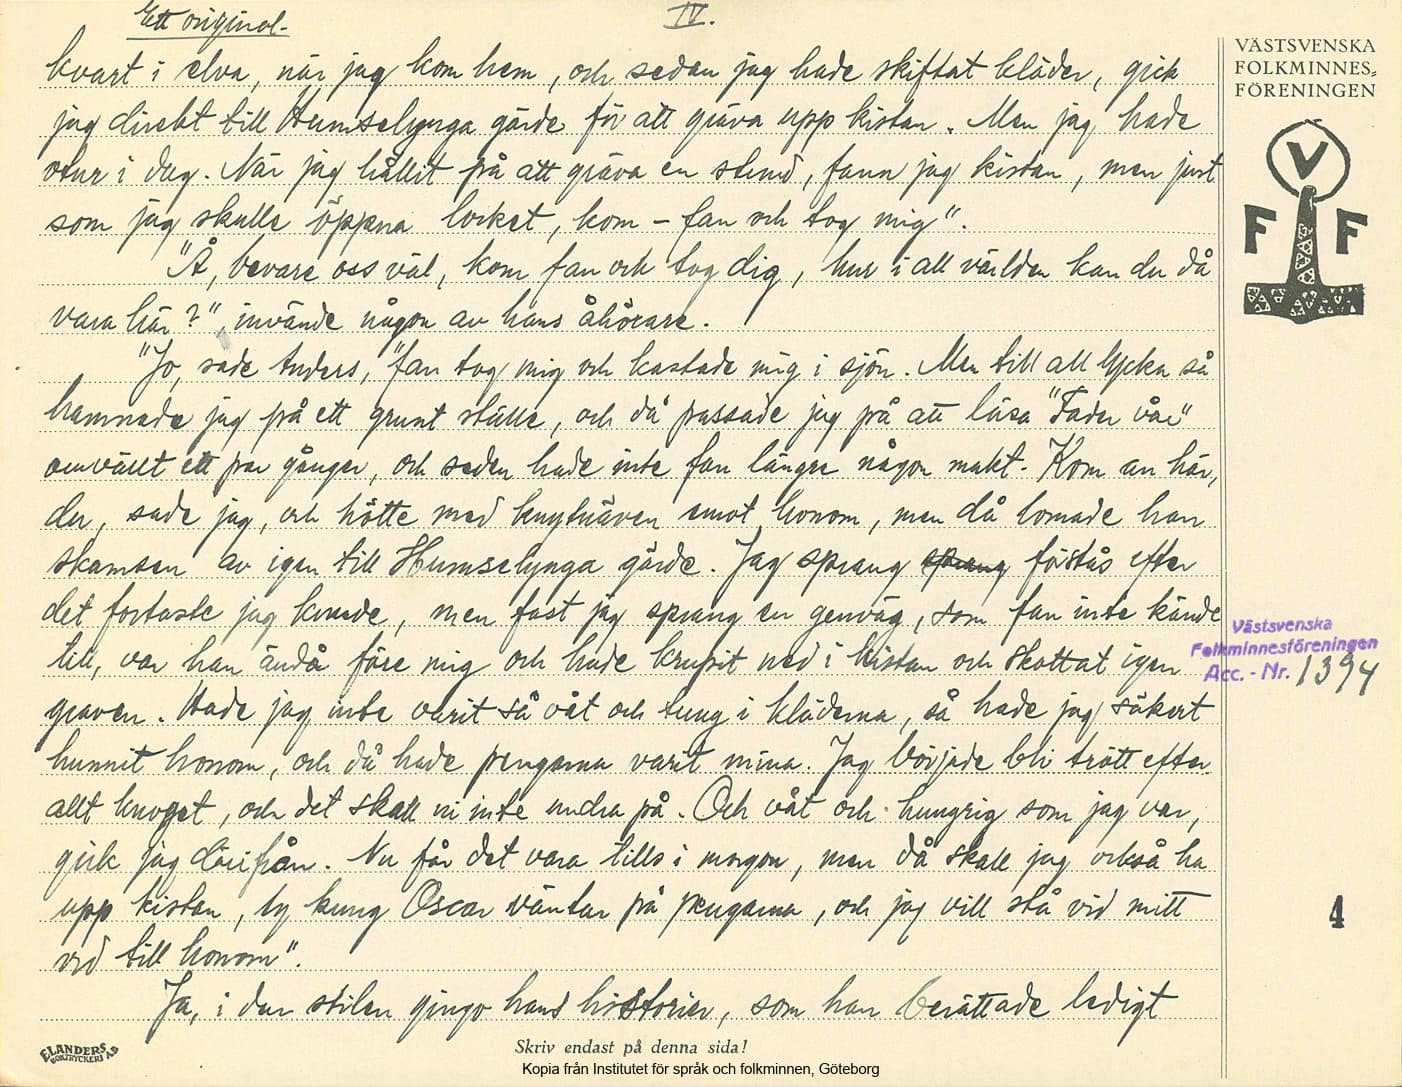 Ett original.
IV.
kvart i elva, när jag kom hem, och sedan jag hade skiftat kläder, gick
jag direkt till Humselynga gärde för att gräva upp kistan. Men jag hade
otur i dag. När jag hållit på att gräva en stund, fann jag kistan, men just
som jag skulle öppna locket, kom – fan och tog mig".
"Å, bevare oss väl, kom fan och tog dig, hur i all världen kan du då
vara här?", invände någon av hans åhörare.
"Jo, sade Anders, "fan tog mig och kastade mig i sjön. Men till all lycka så
hamnade jag på ett grunt ställe, och då passade jag på att läsa "Fader vår"
omvänt ett par gånger, och sedan hade inte fan längre någon makt. Kom an här,
du, sade jag, och hötte med knytnäven emot honom, men då lomade han
skamsen av igen till Humselynga gärde. Jag sprang sprang förstås efter
det fortaste jag kunde, men fast jag sprang en genväg, som fan inte kände
till, var han ändå före mig och hade krupit ned i kistan och skottat igen
graven. Hade jag inte varit så våt och tung i kläderna, så hade jag säkert
hunnit honom, och då hade pengarna varit mina. Jag började bli trött efter
allt knoget, och det skall ni inte undra på. Och våt och hungrig som jag var,
gick jag därifrån. Nu får det vara tills i morgon, men då skall jag också ha
upp kistan, ty kung Oscar väntar på pengarna, och jag vill stå vid mitt
ord till honom".
Ja, i den stilen gingo hans historier, som han berättade ledigt
VÄSTSVENSKA
FOLKMINNES-
FÖRENINGEN
V
F F
Västsvenska
Folkminnesföreningen
Acc.-Nr. 1394
4
ELANDERS
BOKTRYCKERI AB
Skriv endast på denna sida!
Kopia från Institutet för språk och folkminnen, Göteborg